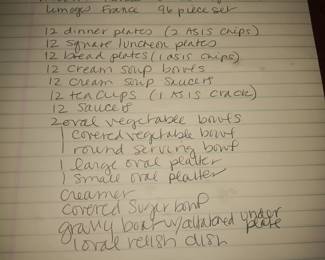 Limoges France 96 piece set
12 dinner plates (2 AS IS chips)
12 square luncheon plates
12 bread plates (1 as is chips)
12 cream soup bowls
12 cream soup saucers
12 teacups (1 AS IS crack)
12 saucers
2 oval vegetable bowls
1 covered vegetable bowl
1 round serving bowl
1 large oval platter
1 small oval platter
creamer
covered sugar bowl
gravy boat w/attatched under plate
1 oval relish dish